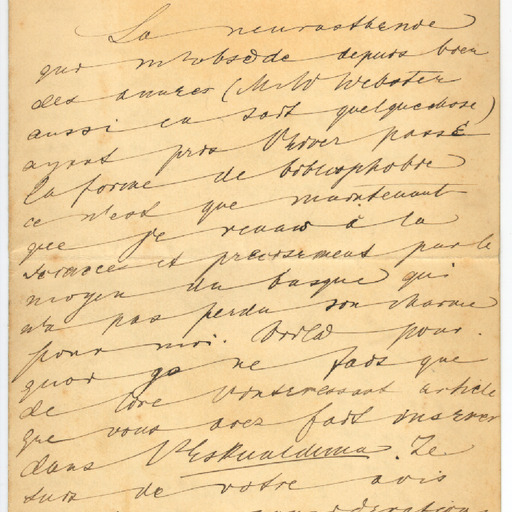 La neurasthenie
qui m'obsède depuis bien
des années (Mr W Webster
aussi en sait quelque chose)
ayant pris l'hiver passé
la forme de bibliophobie
ce n'est que maintenant
que je reviens à la
science et précisement par le
moyen du basque qui
n'a pas perdu son charme
pour moi. Voilà pour
quoi je ne fais que
de lire l'interessant article
que vous avez fait insérer
dans l'Eskualduna. Je
suis de votre avis